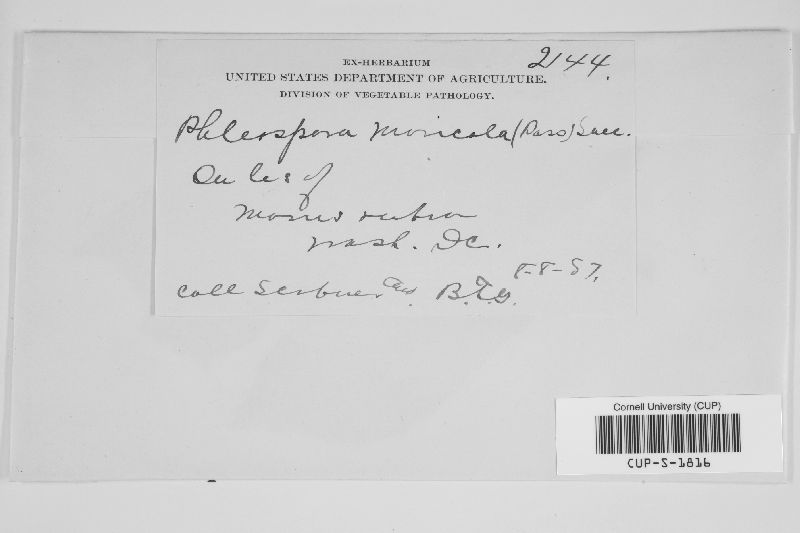 2144.
EX-HERBARIUM
UNITED STATES DEPARTMENT OF AGRICULTURE.
DIVISION OF VEGETABLE PATHOLOGY.
Phleospora moricola (Pass) Sacc.
On lvs of
Morus rubra
Wash. DC.
8-8-87.
Coll Scribner and B.T.G.
Cornell University (CUP)
CUP-S-1816